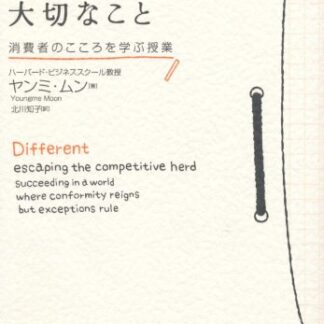 大切なこと
消費者のこころを学ぶ授業
ハーバード・ビジネススクール教授
ヤンミ・ムン[著]
Youngme Moon
北川知子[訳]
Different
escaping the competitive herd
succeeding in a world
where conformity reigns
but exceptions rule